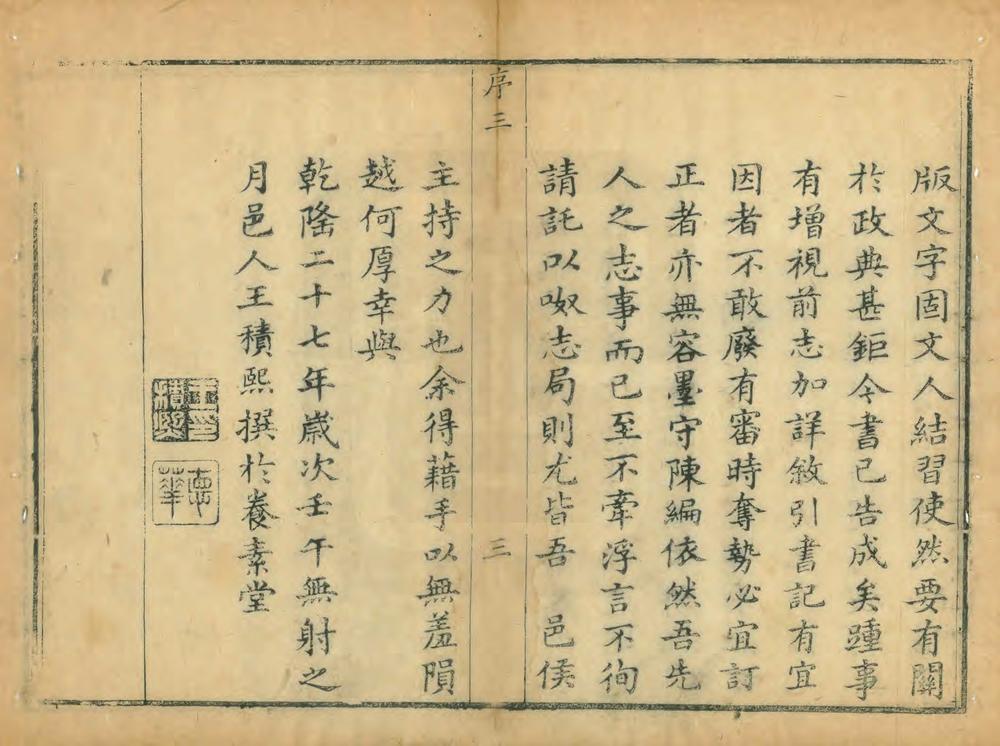 版文字固文人結習使然要有關
於政典甚鉅今書已告成矣踵事
有增視前志加詳敘引書記有宜
因者不敢廢有審時奪勢必宜訂
正者亦無容墨守陳編依然吾先
人之志事而已至不牽浮言不徇
請託以呶志局則尤皆吾 邑侯
序三
三
主持之力也余得藉手以無羞隕
越何厚幸與
乾隆二十七年歲次壬午無射之
月邑人王積熙撰於養素堂
王積熙印